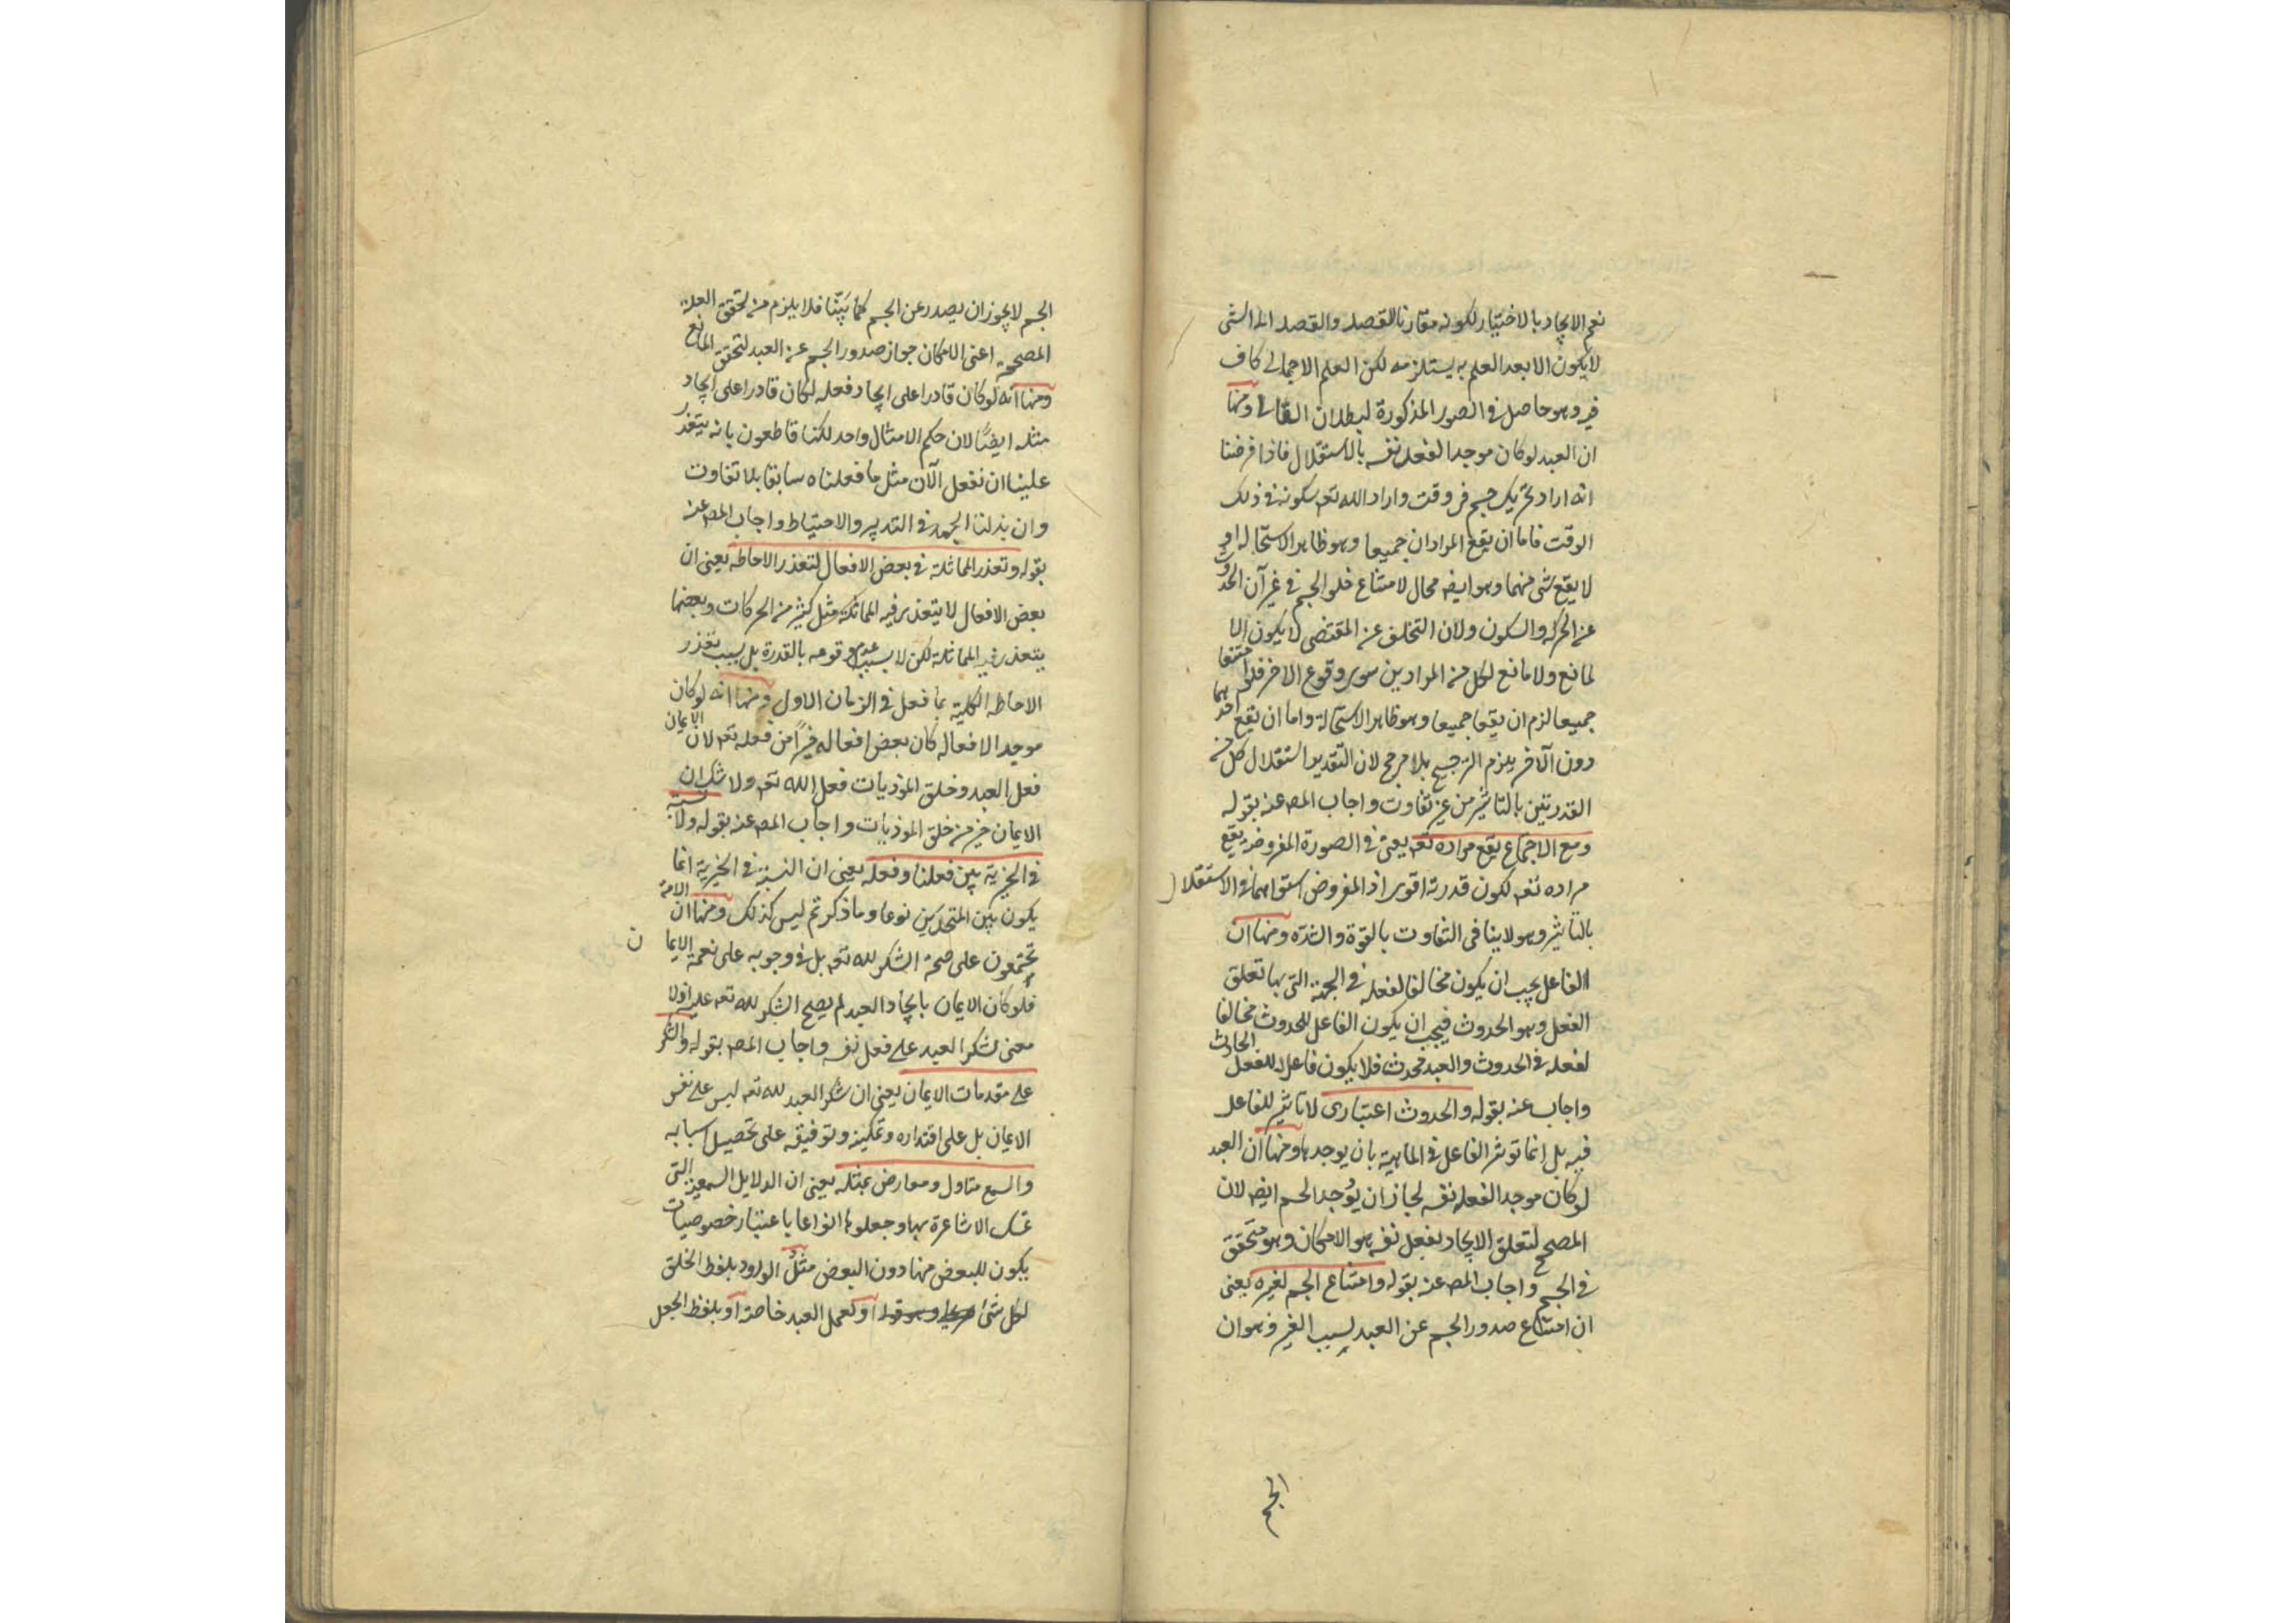 نعم الايجاد بالاختيار لكونه مقارنا للقصد والقصد الى الشئ
لا يكون الا بعد العلم به يستلزمه لكن العلم الاجمالى كاف
فيه وهو حاصل فى الصور المذكورة لبطلان التالى ومنها
ان العبد لو كان موجدا لفعل نفسه بالاستقلال فاذا فرضنا
انه اراد تحريك جسم فى وقت واراد الله تعه سكونه فى ذلك
الوقت فاما ان يقع المرادان جميعا وهو ظاهر الاستحالة او
لا يقع شئ منهما وهو ايضه محال لامتناع خلو الجسم فى غير آن الحدوث
عن الحركة والسكون ولان التخلف عن المقتضى لا يكون الا
لمانع ولا مانع لكل من المرادين سوى وقوع الاخر فلو امتنعا
جميعا لزم ان يقعا جميعا وهو ظاهر الاستحالة واما ان يقع احدهما
دون الآخر يلزم الترجيح بلا مرجح لان التقدير استقلال كل من
القدرتين بالتاثير من غير تفاوت واجاب المصه عنه بقوله
ومع الاجتماع يقع مراده تعه يعنى فى الصورة المفروضة يقع
مراده تعه لكون قدرته اقوى اذ المفروض استواهما فى الاستقلال
بالتاثير وهو لا ينافى التفاوت بالقوة والشدة ومنها ان
الفاعل يجب ان يكون مخالفا لفعله فى الجهة التى بها تعلق
الفعل وهو الحدوث فيجب ان يكون الفاعل للحدوث مخالفا
لفعله فى الحدوث والعبد محدث فلا يكون فاعلا للفعل الحادث
واجاب عنه بقوله والحدوث اعتبارى لا تاثير للفاعل
فيه بل انما توثر الفاعل فى الماهية بان يوجدها ومنها ان العبد
لو كان موجد الفعل نفسه لجاز ان يوجد الجسم ايضه لان
المصحح لتعلق الايجاد بفعل نفسه هو الامكان وهو متحقق
فى الجسم واجاب المصه عنه بقوله وامتناع الجسم لغيره يعنى
ان امتناع صدور الجسم عن العبد لسبب الغير وهو ان
الجسم
الجسم لا يجوز ان يصدر عن الجسم كما بَيَّنا فلا يلزم من تحقق العلة
المصححة اعنى الامكان جواز صدور الجسم عن العبد لتحقق المانع
ومنها انه لو كان قادرا على ايجاد فعله لكان قادرا على ايجاد
مثله ايضًا لان حكم الامثال واحد لكنا قاطعون بانه يتعذر
علينا ان نفعل الآن مثل ما فعلناه سابقا بلا تفاوت
وان بذلنا الجهد فى التدبير والاحتياط واجاب المصه عنه
بقوله وتعذر المماثلة فى بعض الافعال لتعذر الاحاطه يعنى ان
بعض الافعال لا يتعذر فيه المماثلة مثل كثير من الحركات وبعضها
يتعذر فيه المماثلة لكن لا بسبب عدم وقوعه بالقدرة بل بسبب تعذر
الاحاطه الكلية بما فعل فى الزمان الاول ومنها انه لو كان
موجدا لافعاله كان بعض افعاله خيرًا من فعله تعه لان الايمان
فعل العبد وخلق الموذيات فعل الله تعه ولا شك ان
الايمان خير من خلق الموذيات واجاب المصه عنه بقوله ولا نسبة
فى الخيرية بين فعلنا وفعله يعنى ان النسبة فى الخيرية انما
يكون بين المتحدين نوعا وما ذكرتم ليس كذلك ومنها ان الامة
تجتمعون على صحة الشكر لله تعه بل فى وجوبه على نعمة الايمان
فلو كان الايمان بايجاد العبد لم يصح الشكر لله تعه عليه اذ لا
معنى لشكر العبد على فعل نفسه واجاب المصه بقوله والشكر
على مقدمات الايمان يعنى ان شكر العبد لله تعه ليس على نفس
الايمان بل على اقتداره وتمكينه وتوفيقه على تحصيل اسبابه
والسمع متاول ومعارض بمثله يعنى ان الدلايل السمعية التى
تمسك الاشاعرة بها وجعلوها انواعا باعتبار خصوصيات
يكون للبعض منها دون البعض مثل الورود بلفظ الخلق
لكل شئ او لعمل العبد خاصة او بلفظ الجعل